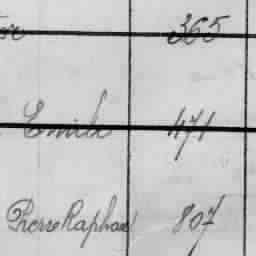 365
Emile 471
Pierre Raphael 807